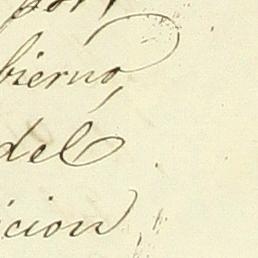 por
bierno,
del
icion,